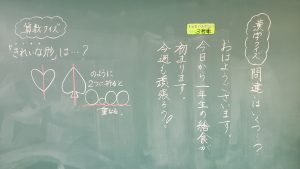 算数クイズ
「きれいな形」は…?
のように
2つに折ると
重なる。
漢字クイズ 間違いはいくつ…?
おはようございます。
今日から一年生の給食が
初まります。
今週も頑張ろう。